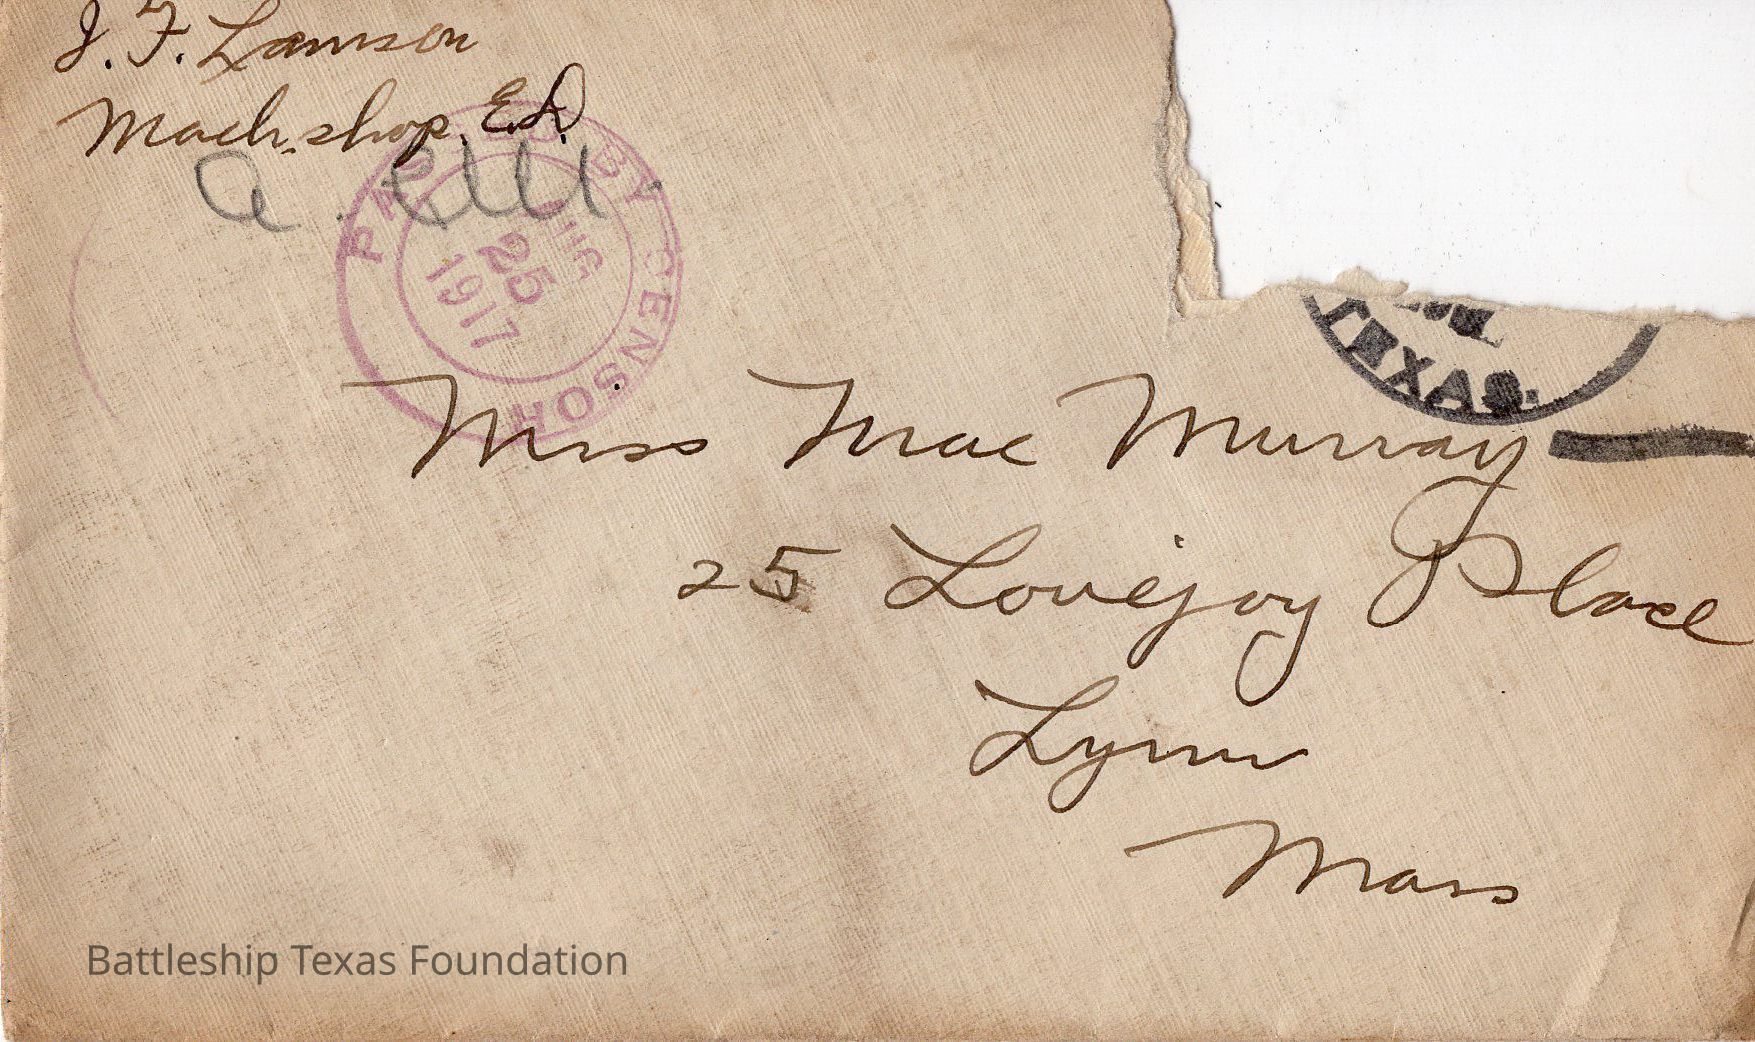 J. F. Lamson
Mach. shop. E.D.
a.
PASSED BY CENSOR
AUG
25
1917
TEXAS.
Miss Mae Murray
25 Lovejoy Place
Lynn
Mass
Battleship Texas Foundation